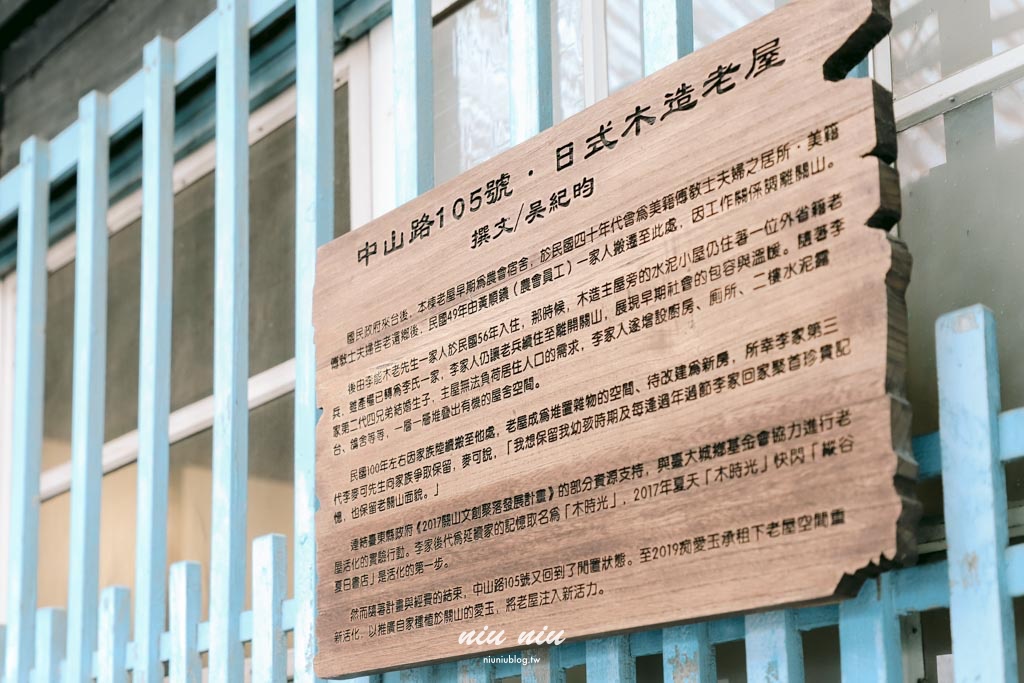 中山路105號‧日式木造老屋
撰文/吳紀昀
國民政府來台後，本棟老屋早期為農會宿舍，於民國四十年代曾為美籍傳教士夫婦之居所‧美籍
傳教士夫婦告老還鄉後，民國49年由黃順鐃（農會員工）一家人搬遷至此處，因工作關係調離關山。
後由李能木老先生一家人於民國56年入住，那時候，木造主屋旁的水泥小屋仍住著一位外省籍老
兵，雖產權已轉為李氏一家，李家人仍讓老兵續住至離開關山，展現早期社會的包容與溫暖。隨著李
家第二代四兄弟結婚生子，主屋無法負荷居住人口的需求，李家人遂增設廚房、廁所、二樓水泥露
台、鴿舍等等，一層一層堆疊出有機的屋舍空間。
民國100年左右因家族陸續搬至他處，老屋成為堆置雜物的空間、待改建為新房，所幸李家第三
代李麥可先生向家族爭取保留，麥可說，「我想保留我幼孩時期及每逢過年過節李家回家聚首珍貴記
憶，也保留老關山面貌。」
連結臺東縣政府《2017關山文創聚落發展計畫》的部分資源支持，與臺大城鄉基金會協力進行老
屋活化的實驗行動。李家後代為延續家的記憶取名為「木時光」，2017年夏天「木時光」快閃「縱谷
夏日書店」是活化的第一步。
然而隨著計畫與經費的結束，中山路105號又回到了閒置狀態。至2019痴愛玉承租下老屋空間重
新活化，以推廣自家種植於關山的愛玉，將老屋注入新活力。
niu niu
niuniublog.tw